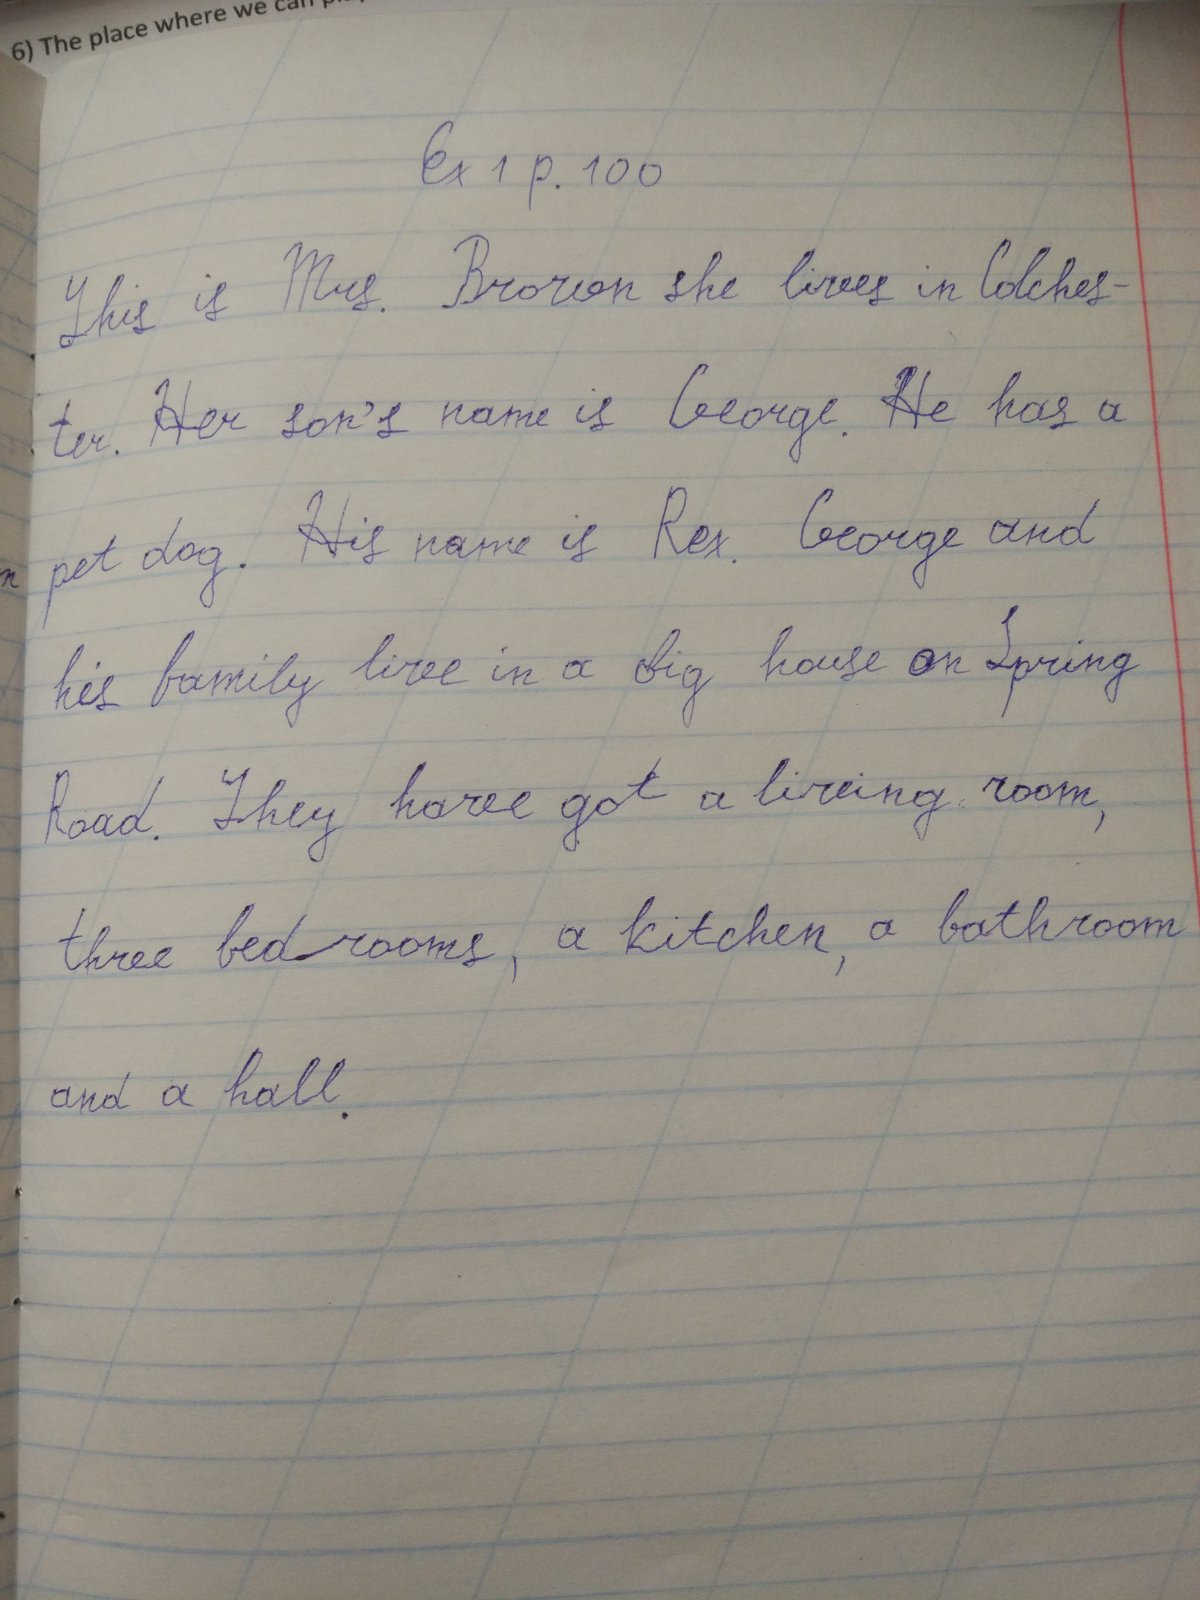 6) The place where we can play
Ex 1 p. 100
This is Mrs. Brown she lives in Colches-
ter. Her son's name is George. He has a
pet dog. His name is Rex. George and
his family live in a big house on Spring
Road. They have got a living room,
three bedrooms, a kitchen, a bathroom
and a hall.